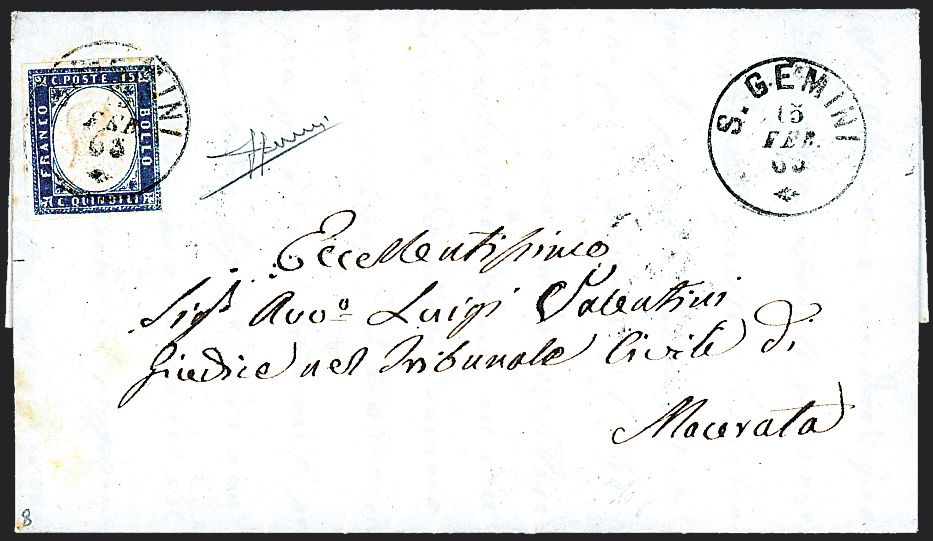 C. POSTE. 15
FRANCO
BOLLO
C. QUINDICI
GEMINI
FEB
63
S. GEMINI
15
FEB.
63
Eccellentissimo
Sigr. Avvo. Luigi Valentini
Giudice nel Tribunale Civile di
Macerata
8